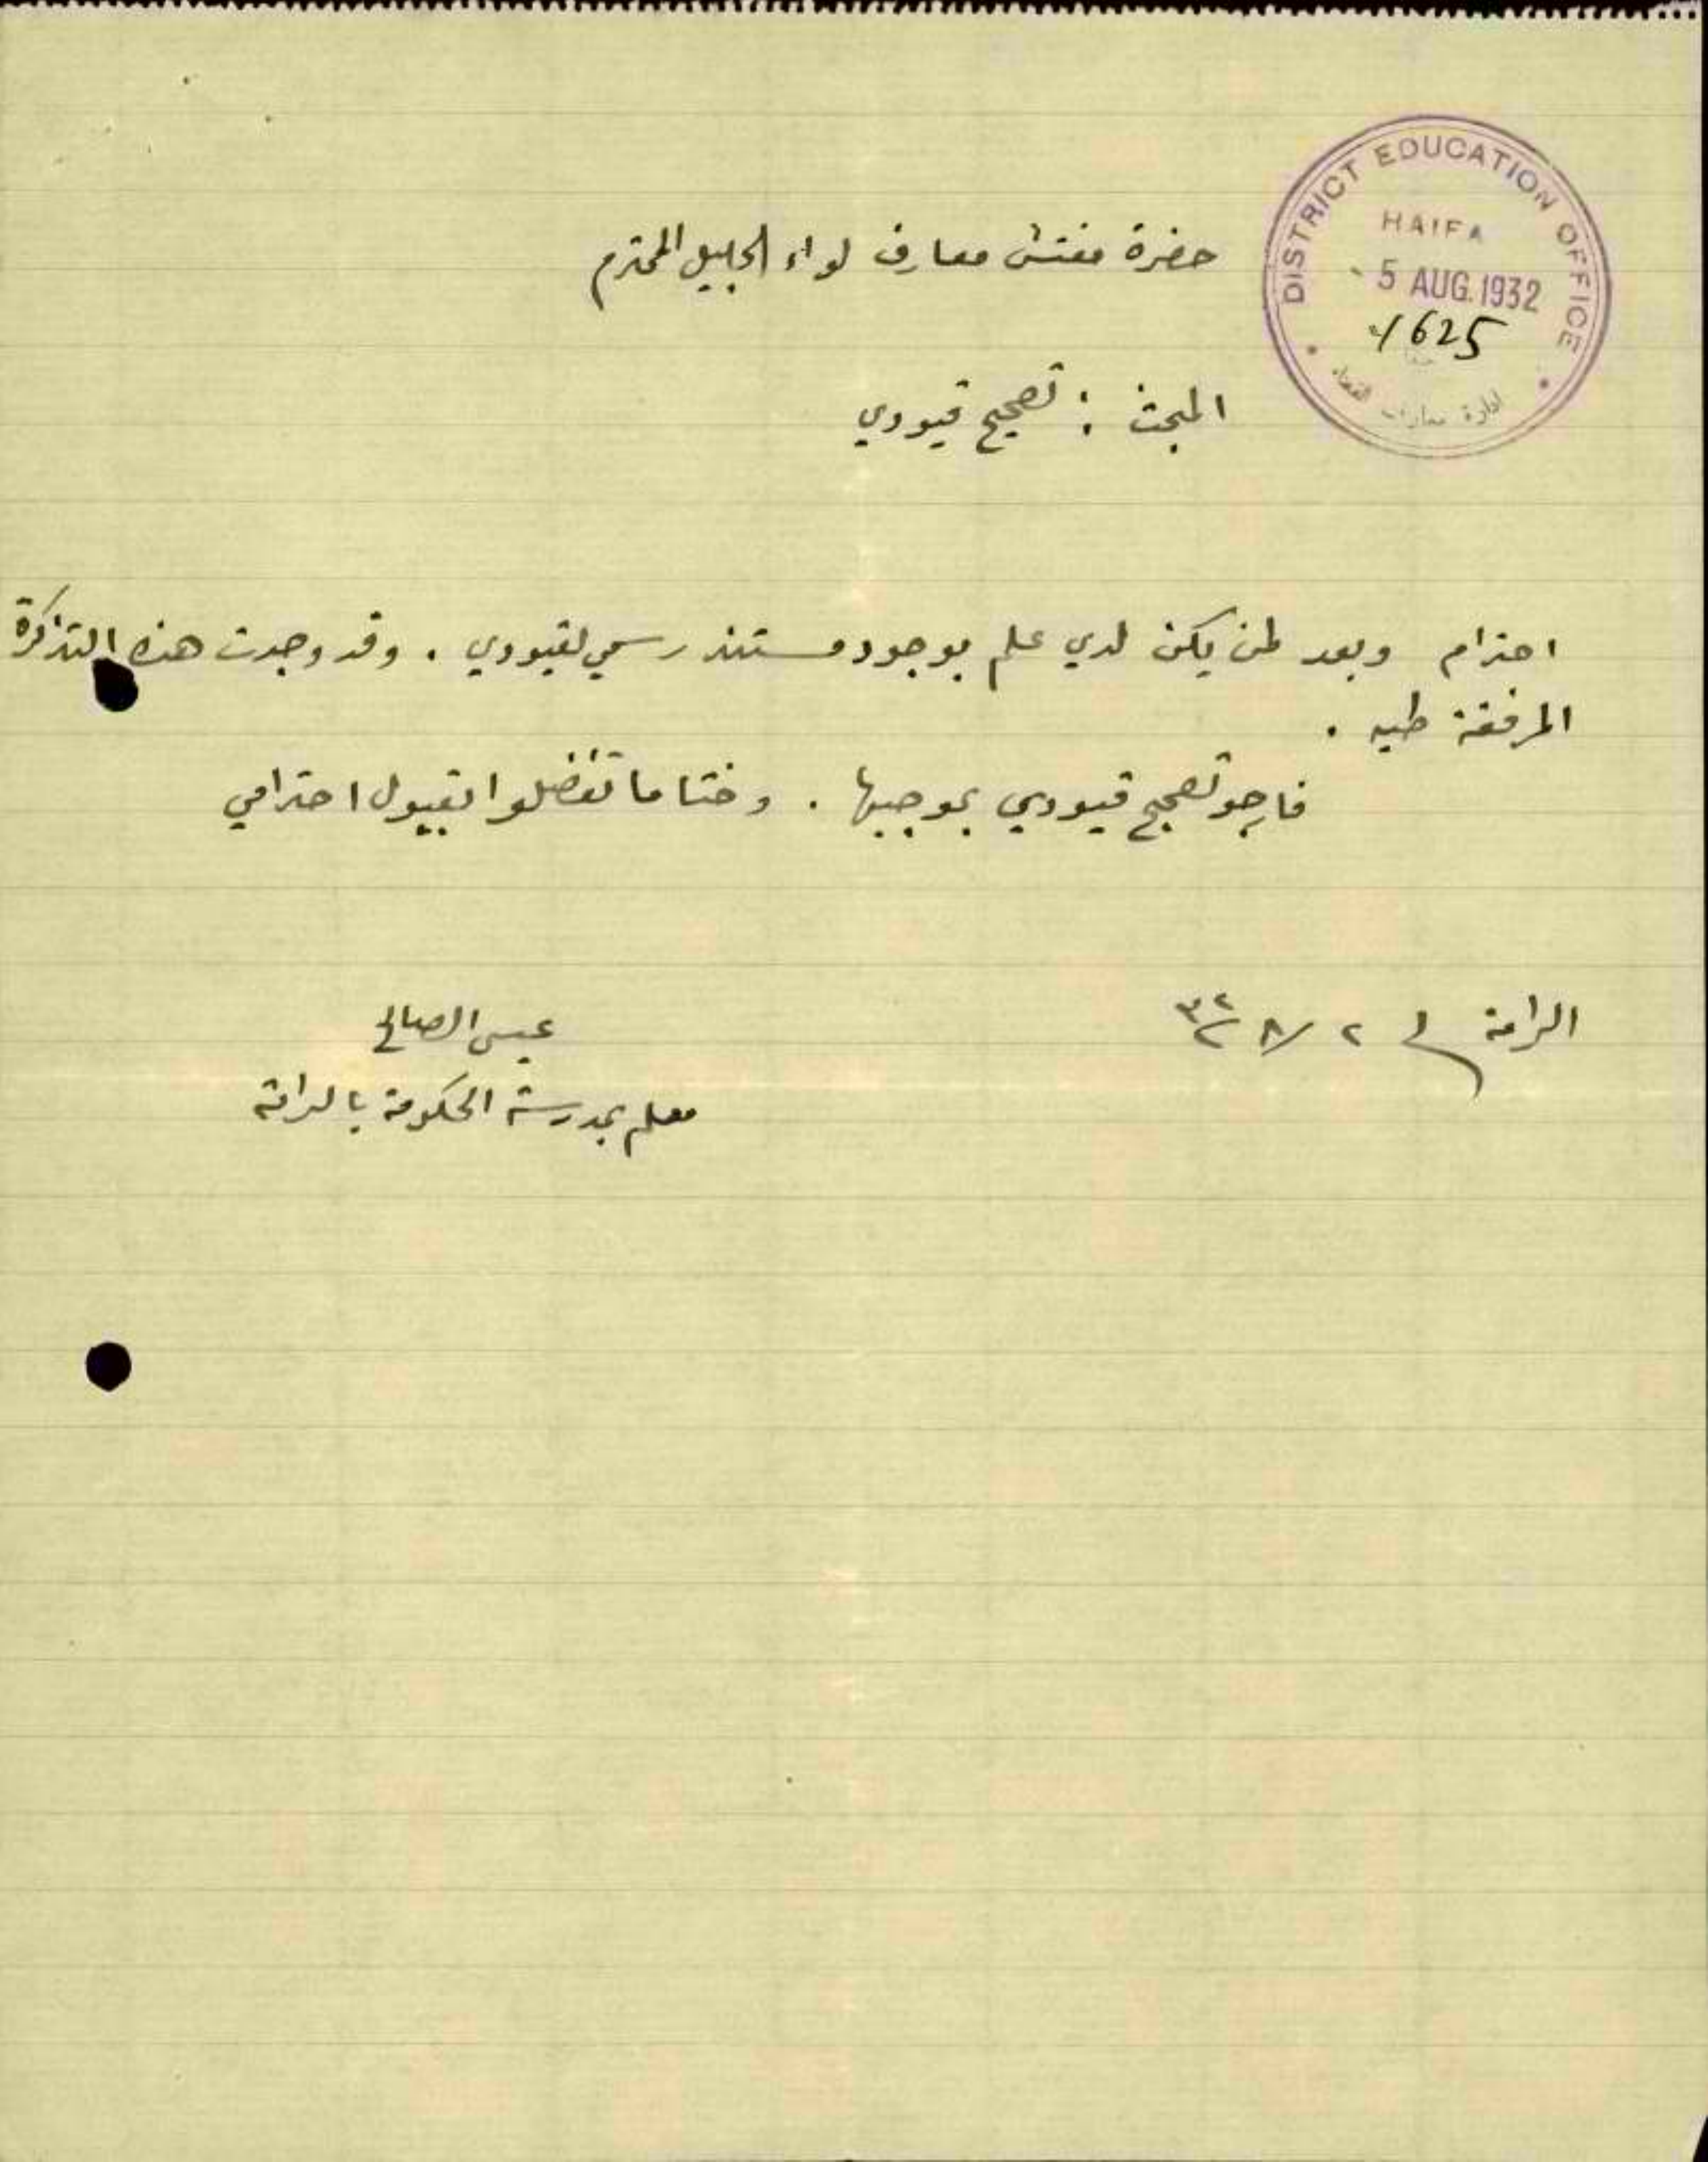 DISTRICT EDUCATION OFFICE
HAIFA
5 AUG. 1932
1625
ادارة معارف
حضرة مفتش معارف لواء الجليل المحترم
المبحث : تصحيح قيودي
احترام وبعد لم يكن لدي علم بوجود مستند رسمي لقيودي . وقد وجدت هذه التذكرة
المرفقة طيه .
فارجو تصحيح قيودي بموجبها . وختاما تفضلوا بقبول احترامي
الرامة في ٢ / ٨ / ٣٢
عيسى الصالح
معلم بمدرسة الحكومة بالرامة